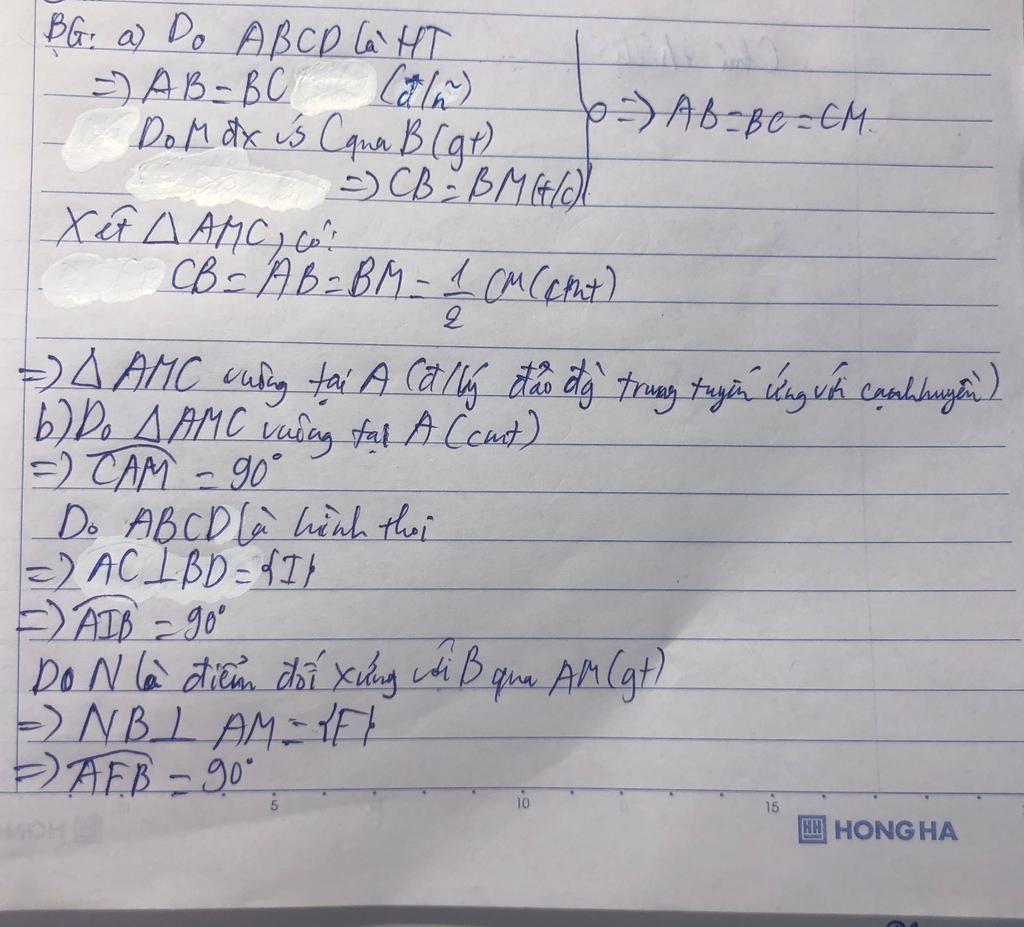 BG: a) Do ABCD là HT
=> AB = BC (đ/n~)
=> AB = BC = CM.
Do M đx v's C qua B (gt)
=> CB = BM (t/c)
Xét △ AMC, có:
CB = AB = BM = 1/2 CM (cmt)
=> △ AMC vuông tại A (đ/lý đảo đg̀ trung tuyến ứng với cạnh huyền)
b) Do △AMC vuông tại A (cmt)
=> CAM = 90°
Do ABCD là hình thoi
=> AC ⊥ BD = {I}
=> AIB = 90°
Do N là điểm đối xứng với B qua AM (gt)
=> NB ⊥ AM = {F}
=> AFB = 90°
5 10 15
HH HONG HA